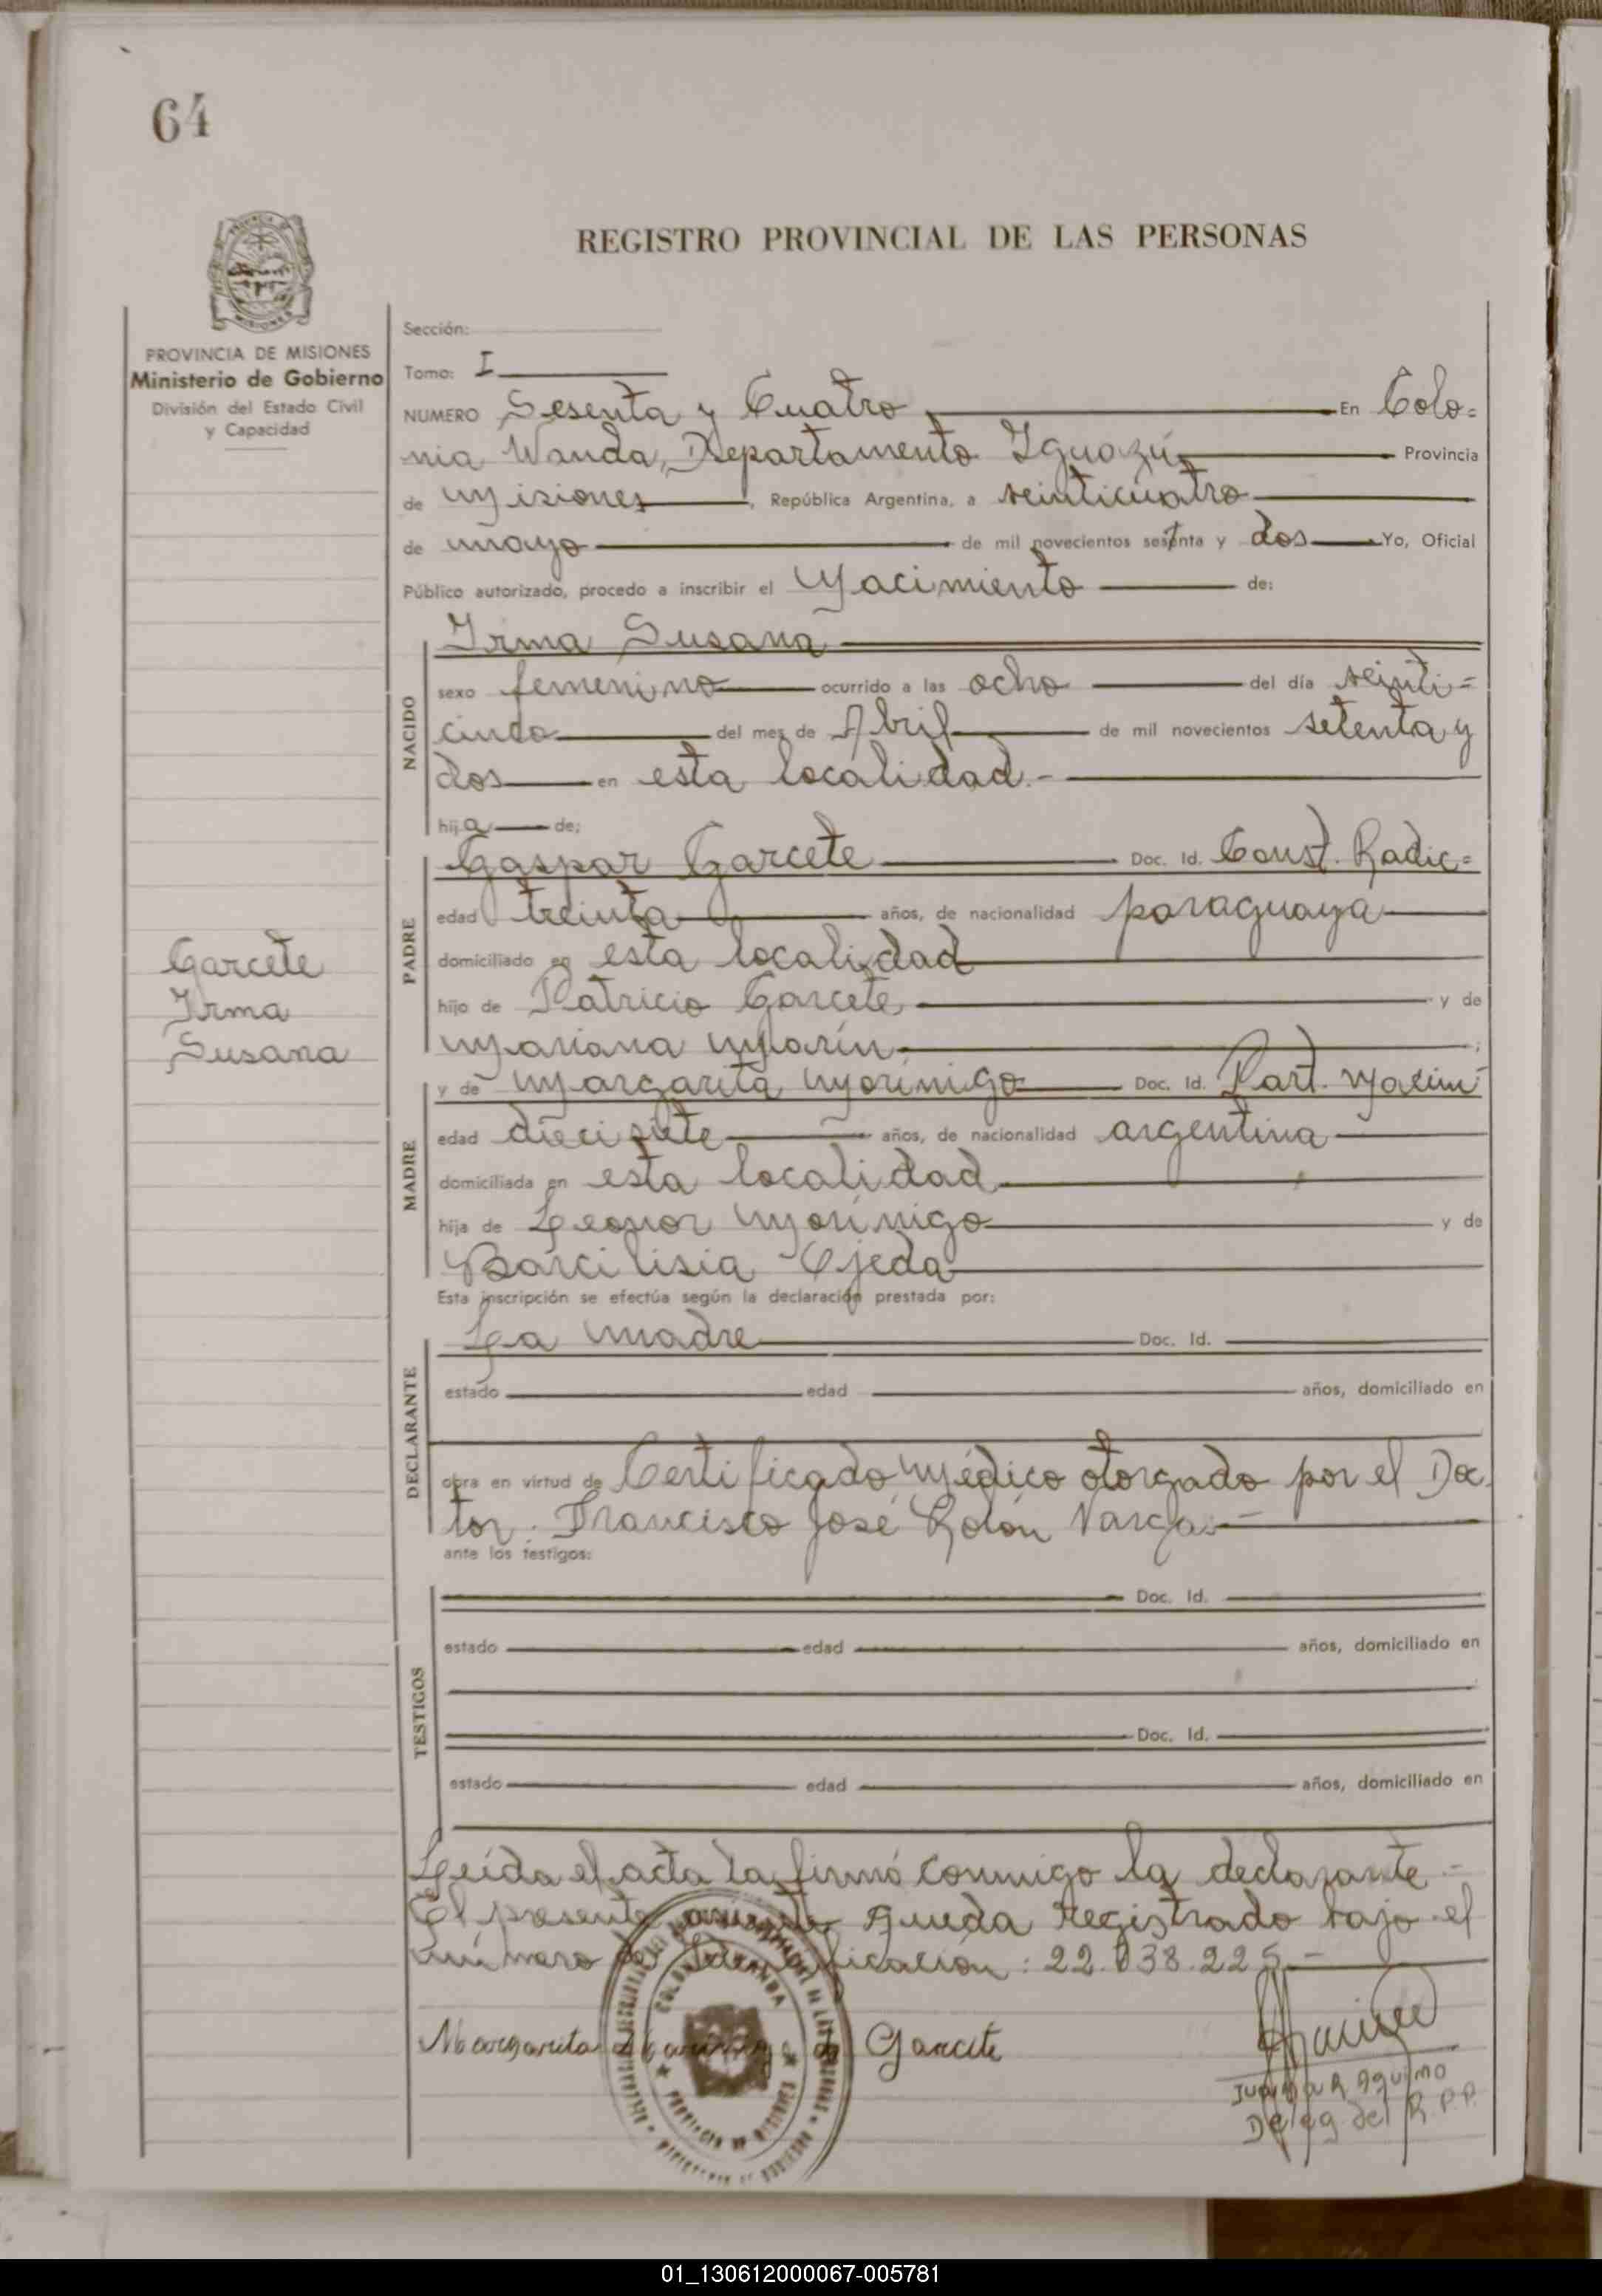 64
REGISTRO PROVINCIAL DE LAS PERSONAS
PROVINCIA DE MISIONES
Ministerio de Gobierno
División del Estado Civil
y Capacidad
Sección:
Tomo: I
NUMERO Sesenta y Cuatro En Colo=
nia Wanda, Departamento Iguazú Provincia
de Misiones, República Argentina, a veinticuatro
de mayo de mil novecientos setenta y dos Yo, Oficial
Público autorizado, procedo a inscribir el Nacimiento de:
Irma Susana
NACIDO
sexo femenino ocurrido a las ocho del día veinti=
cinco del mes de Abril de mil novecientos setenta y
dos en esta localidad.-
hija de;
PADRE
Gaspar Garcete Doc. Id. Const. Radic=
edad treinta años, de nacionalidad paraguaya
domiciliado en esta localidad
hijo de Patricio Garcete y de
Mariana Marín ;
Garcete
Irma
Susana
MADRE
y de Margarita Morinigo Doc. Id. Part. Nacim
edad diecisiete años, de nacionalidad argentina
domiciliada en esta localidad
hija de Leonor Morinigo y de
Barcilisia Ojeda
Esta inscripción se efectúa según la declaración prestada por:
DECLARANTE
La madre Doc. Id.
estado edad años, domiciliado en
obra en virtud de Certificado Médico otorgado por el Doc
tor. Francisco José Rolón Vargas
ante los testigos:
TESTIGOS
Doc. Id.
estado edad años, domiciliado en
Doc. Id.
estado edad años, domiciliado en
Leída el acta la firmó conmigo la declarante.-
El presente asiento queda registrado bajo el
número de Identificación: 22.038.225.-
Margarita Morinigo de Garcete
COLONIA WANDA
PROVINCIA DE MISIONES
Deleg. del R.P.P.
01_130612000067-005781